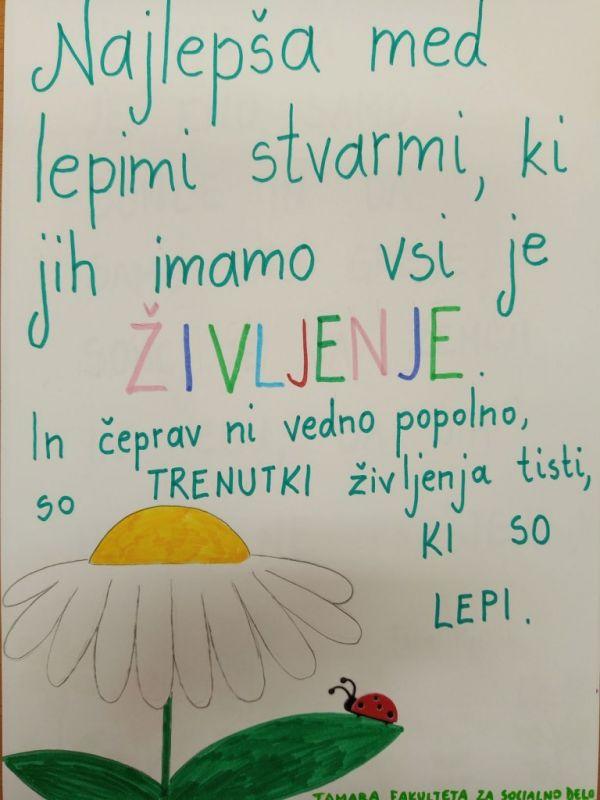 Najlepša med
lepimi stvarmi, ki
jih imamo vsi je
ŽIVLJENJE.
In čeprav ni vedno popolno,
so TRENUTKI življenja tisti,
KI SO
LEPI.
TAMARA FAKULTETA ZA SOCIALNO DELO